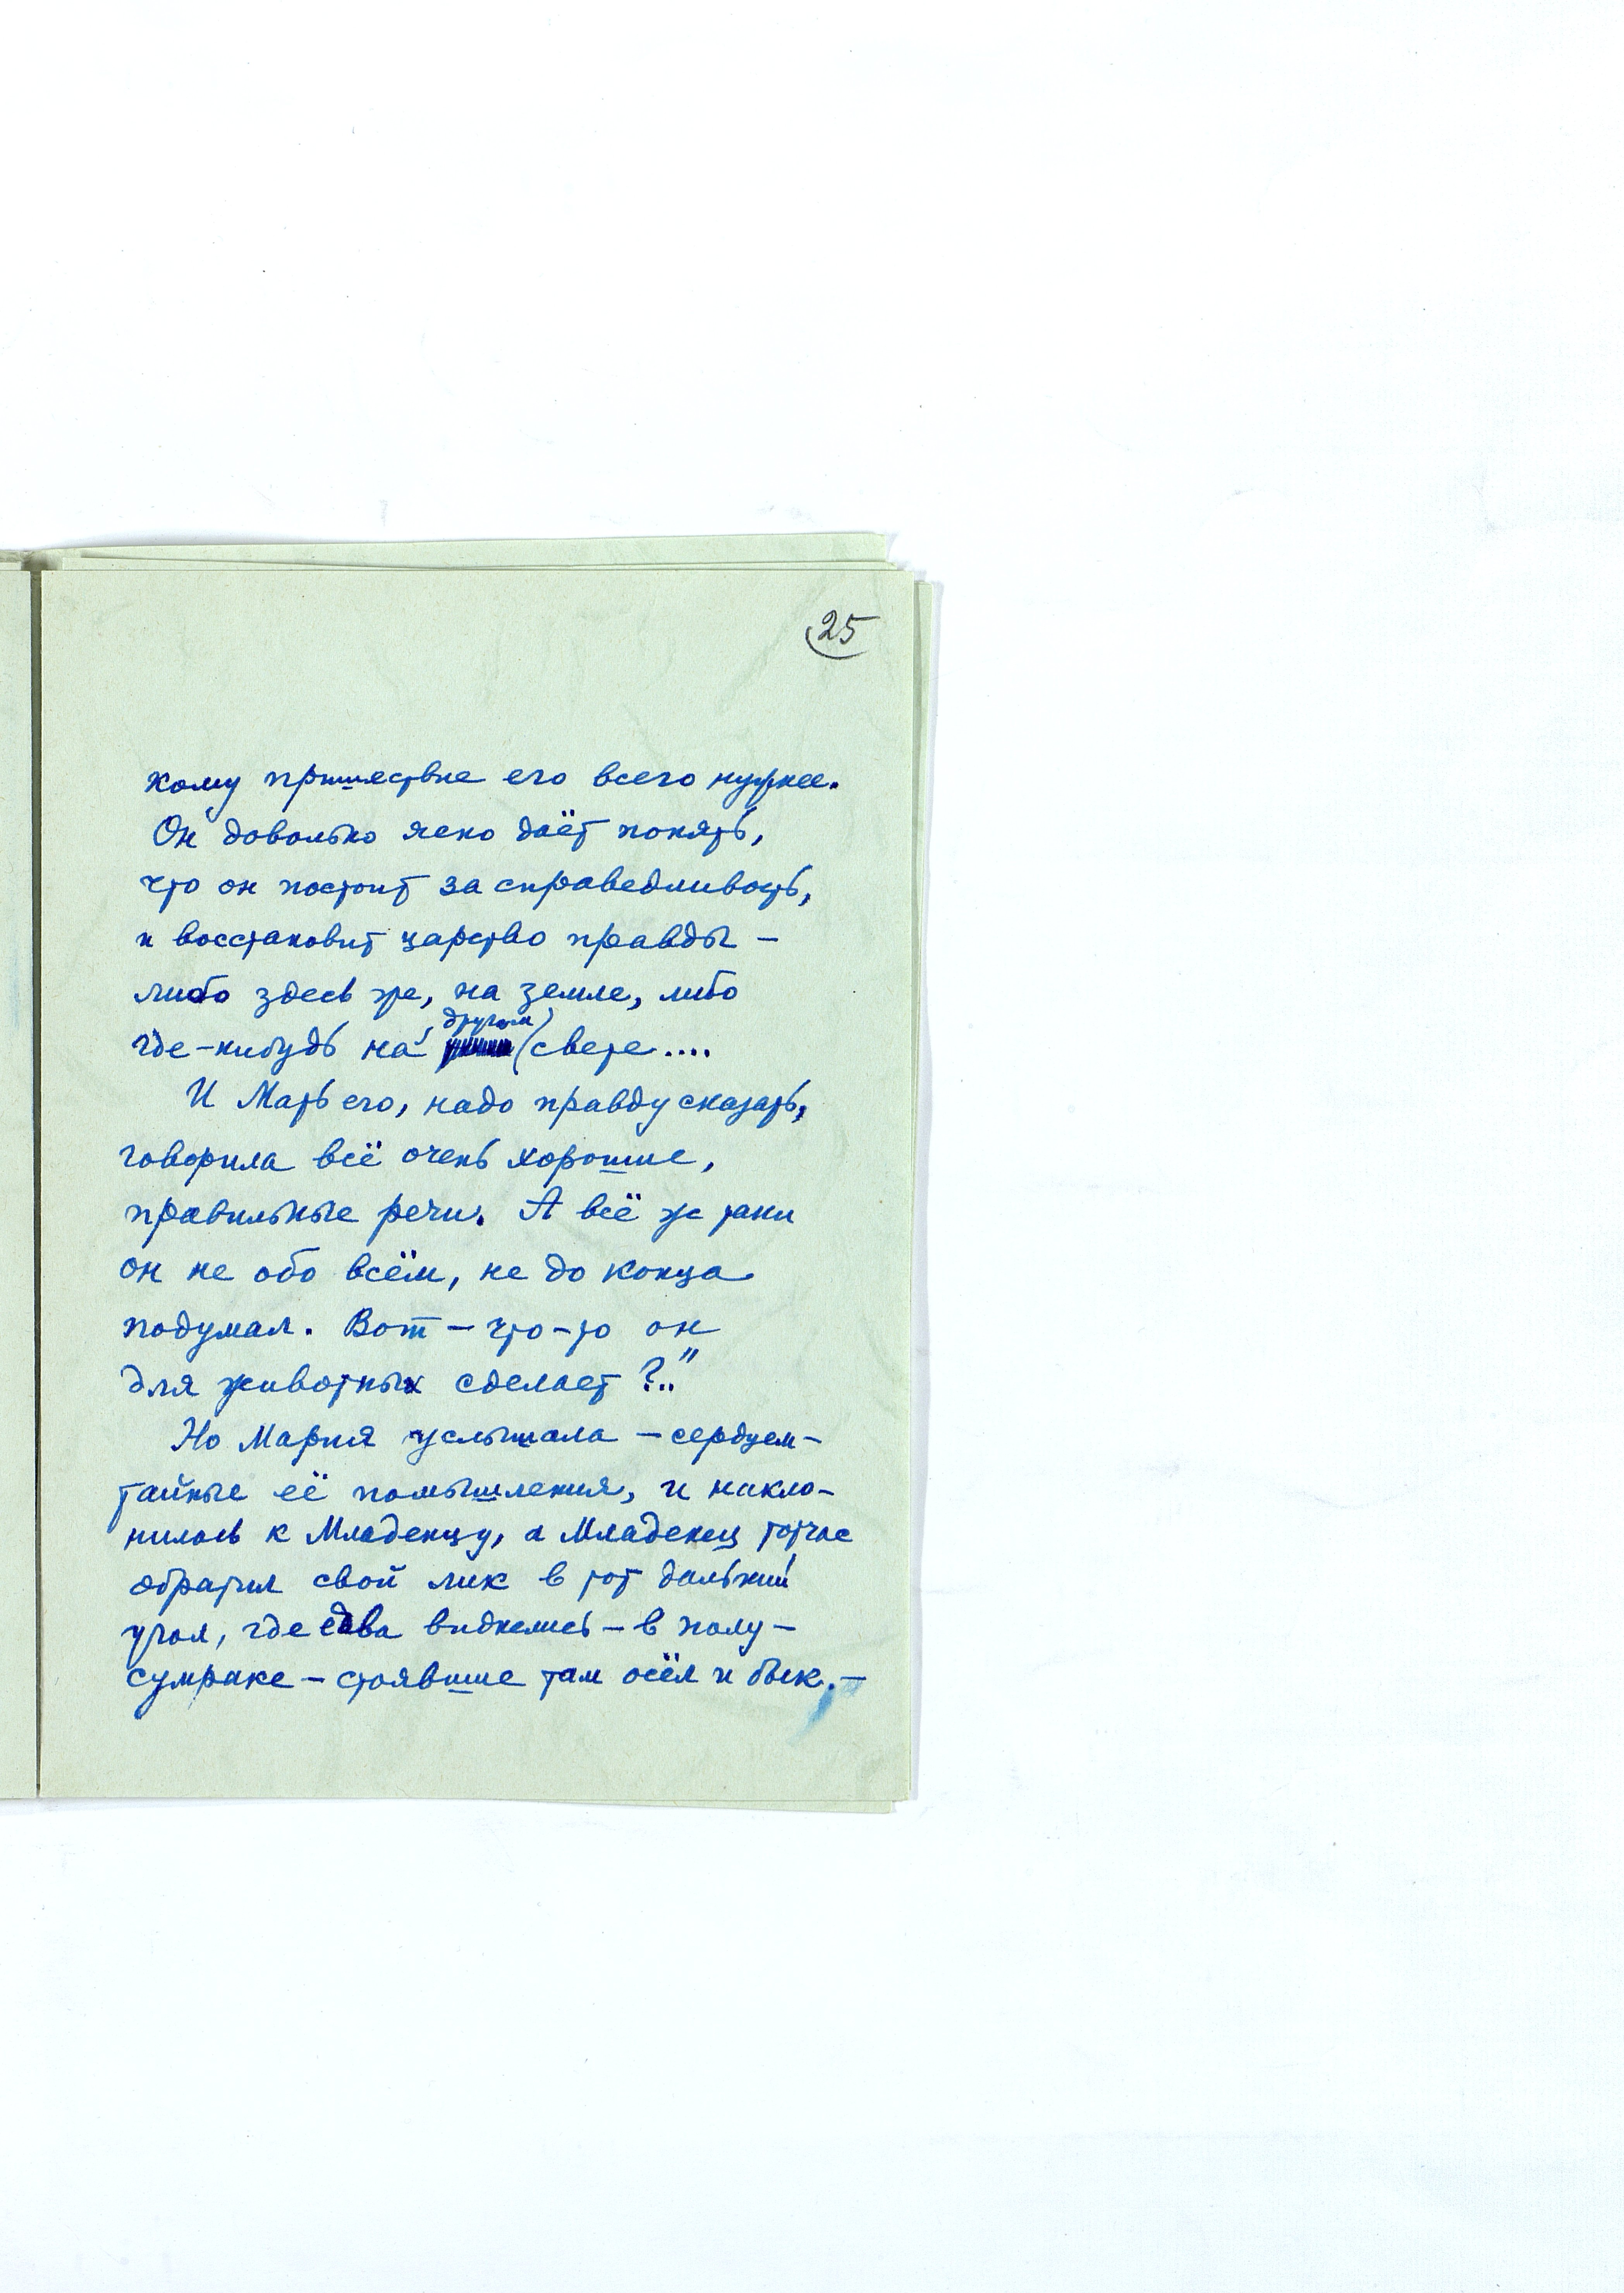 25
кому пришествие его всего нужнее.
Он довольно ясно даёт понять,
что он постоит за справедливость,
и восстановит царство правды –
либо здесь же, на земле, либо
другом
где-нибудь на свете....
И Мать его, надо правду сказать,
говорила всё очень хорошие,
правильные речи. А всё ж таки
он не обо всём, не до конца
подумал. Вот – что-то он
для животных сделает?.."
Но Мария услышала – сердцем –
тайные её помышления, и накло-
нилась к Младенцу, а Младенец тотчас
обратил свой лик в тот дальний
угол, где едва виднелись – в полу-
сумраке – стоявшие там осёл и бык. –